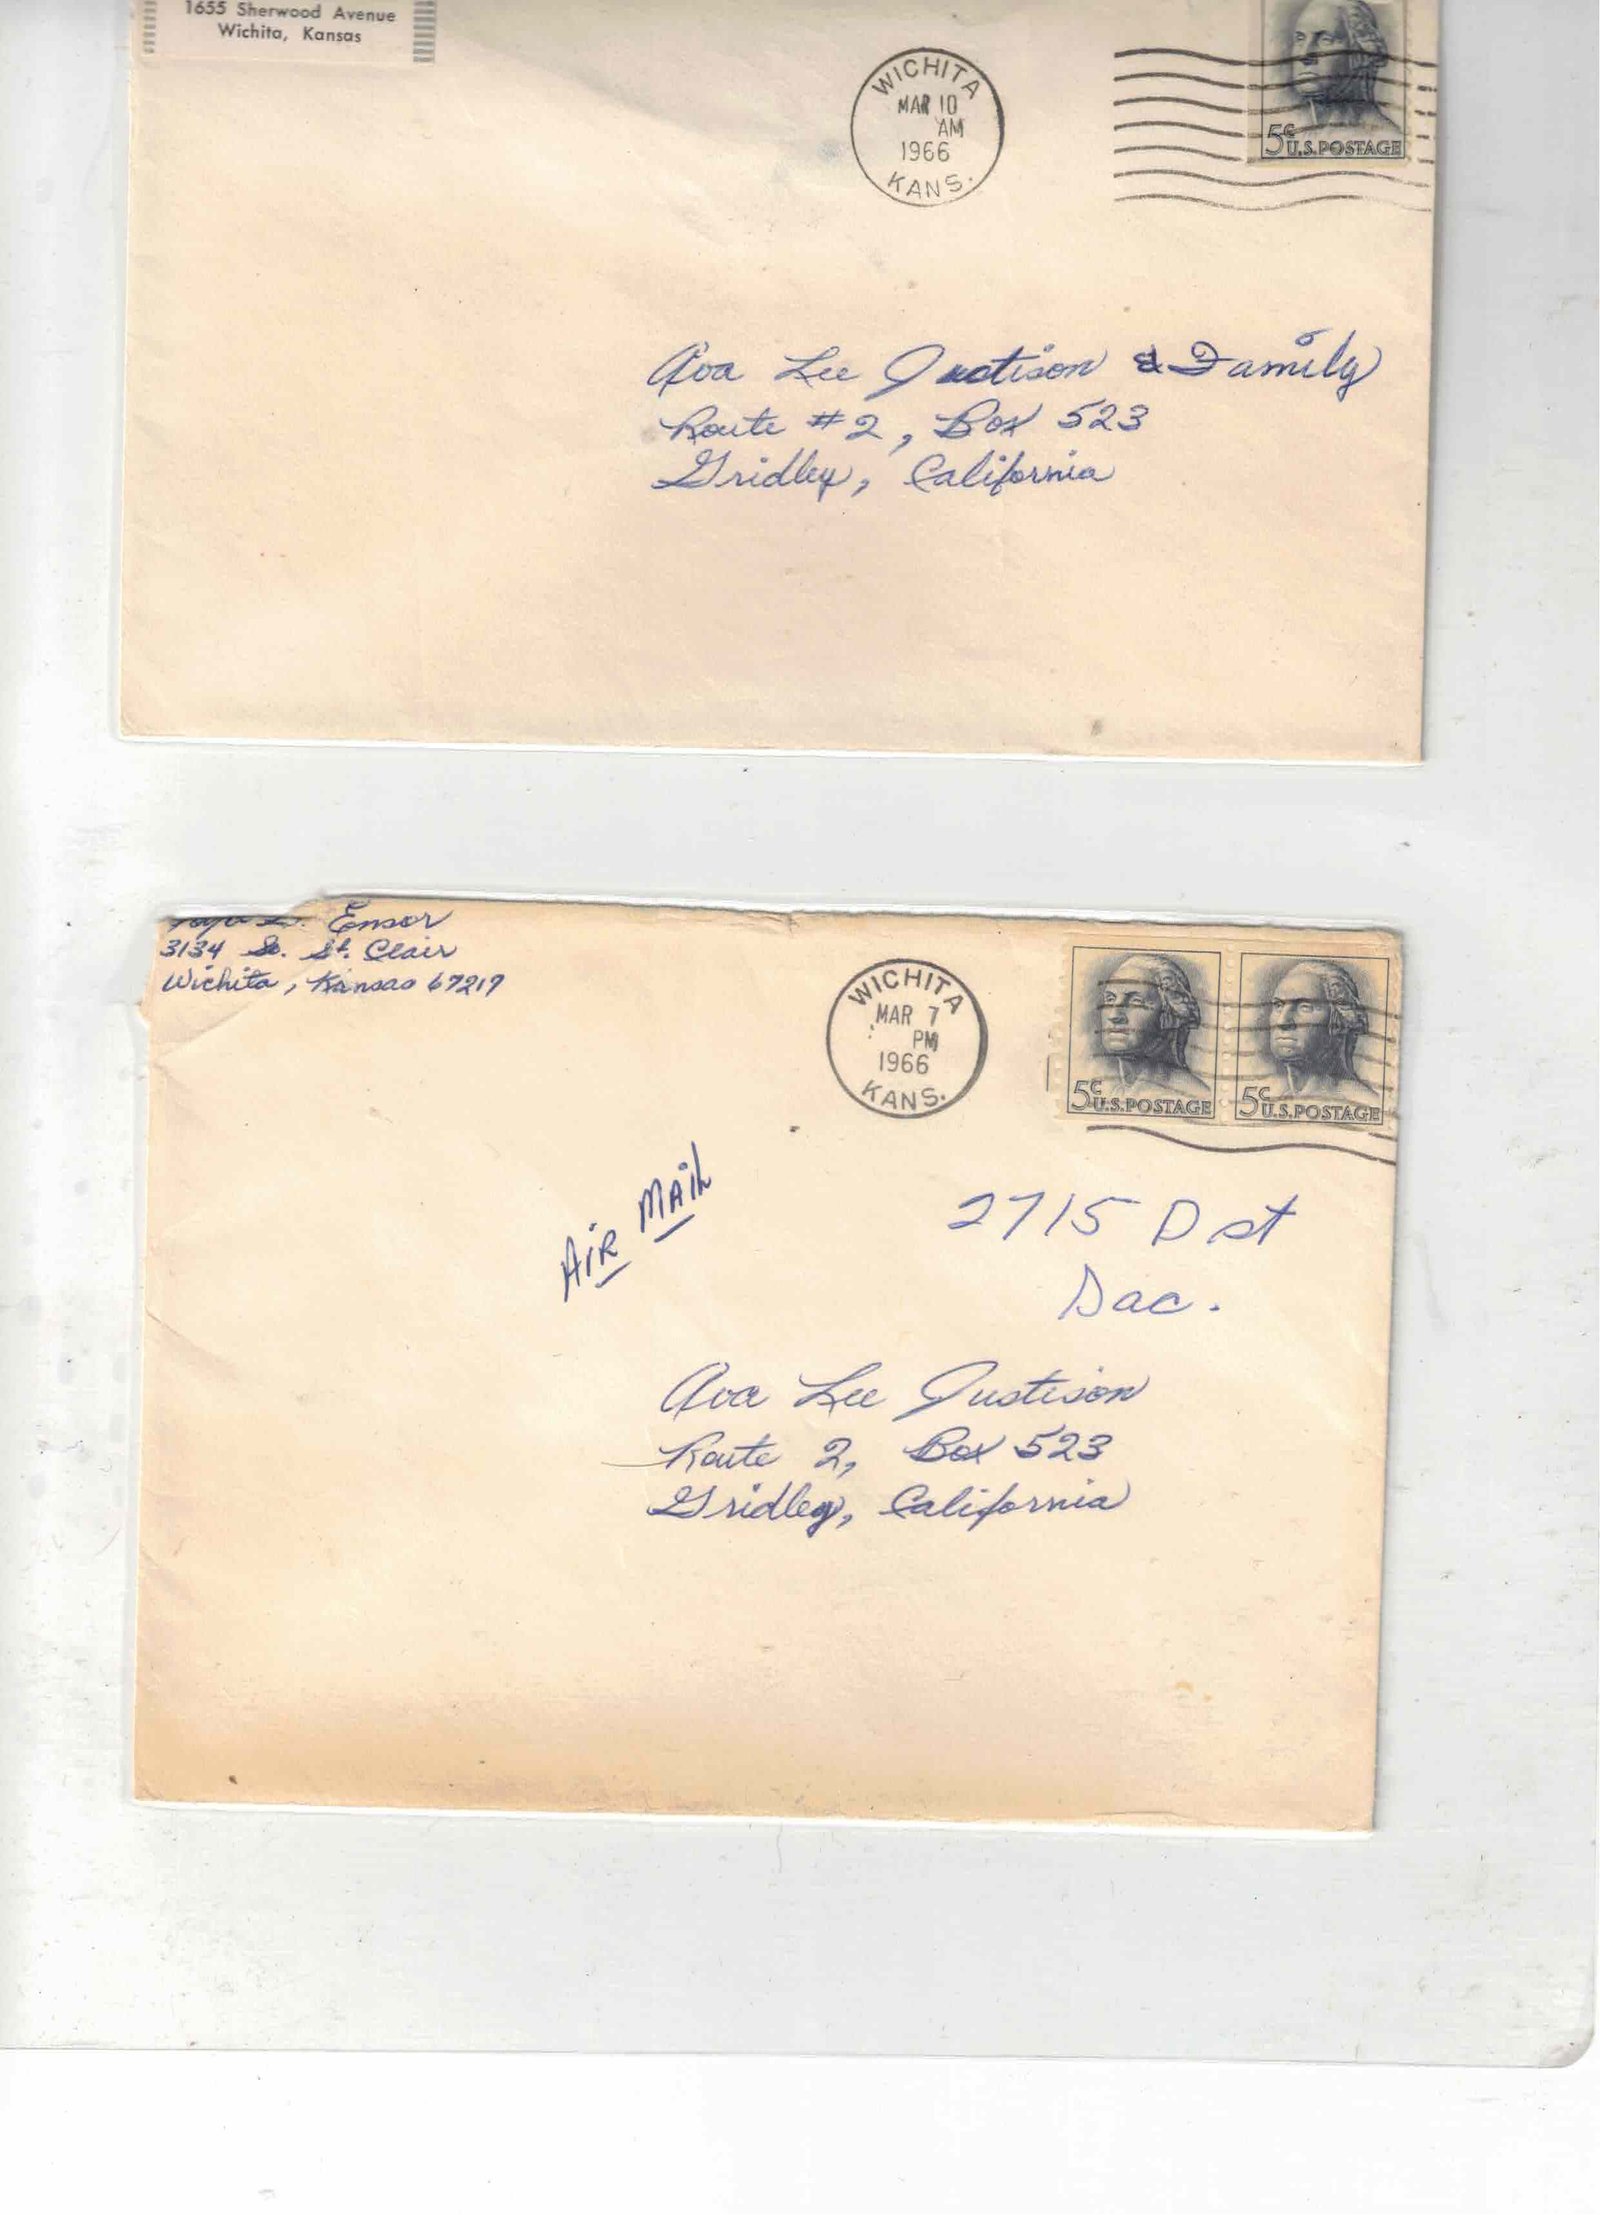 1655 Sherwood Avenue
Wichita, Kansas
WICHITA
MAR 10
AM
1966
KANS.
5¢ U.S. POSTAGE
Ava Lee Justison & Family
Route #2, Box 523
Gridley, California
L. Ensor
3134 So. St. Clair
Wichita, Kansas 67217
WICHITA
MAR 7
PM
1966
KANS.
5¢ U.S. POSTAGE
5¢ U.S. POSTAGE
AiR MAiL
2715 D st
Sac.
Ava Lee Justison
Route 2, Box 523
Gridley, California